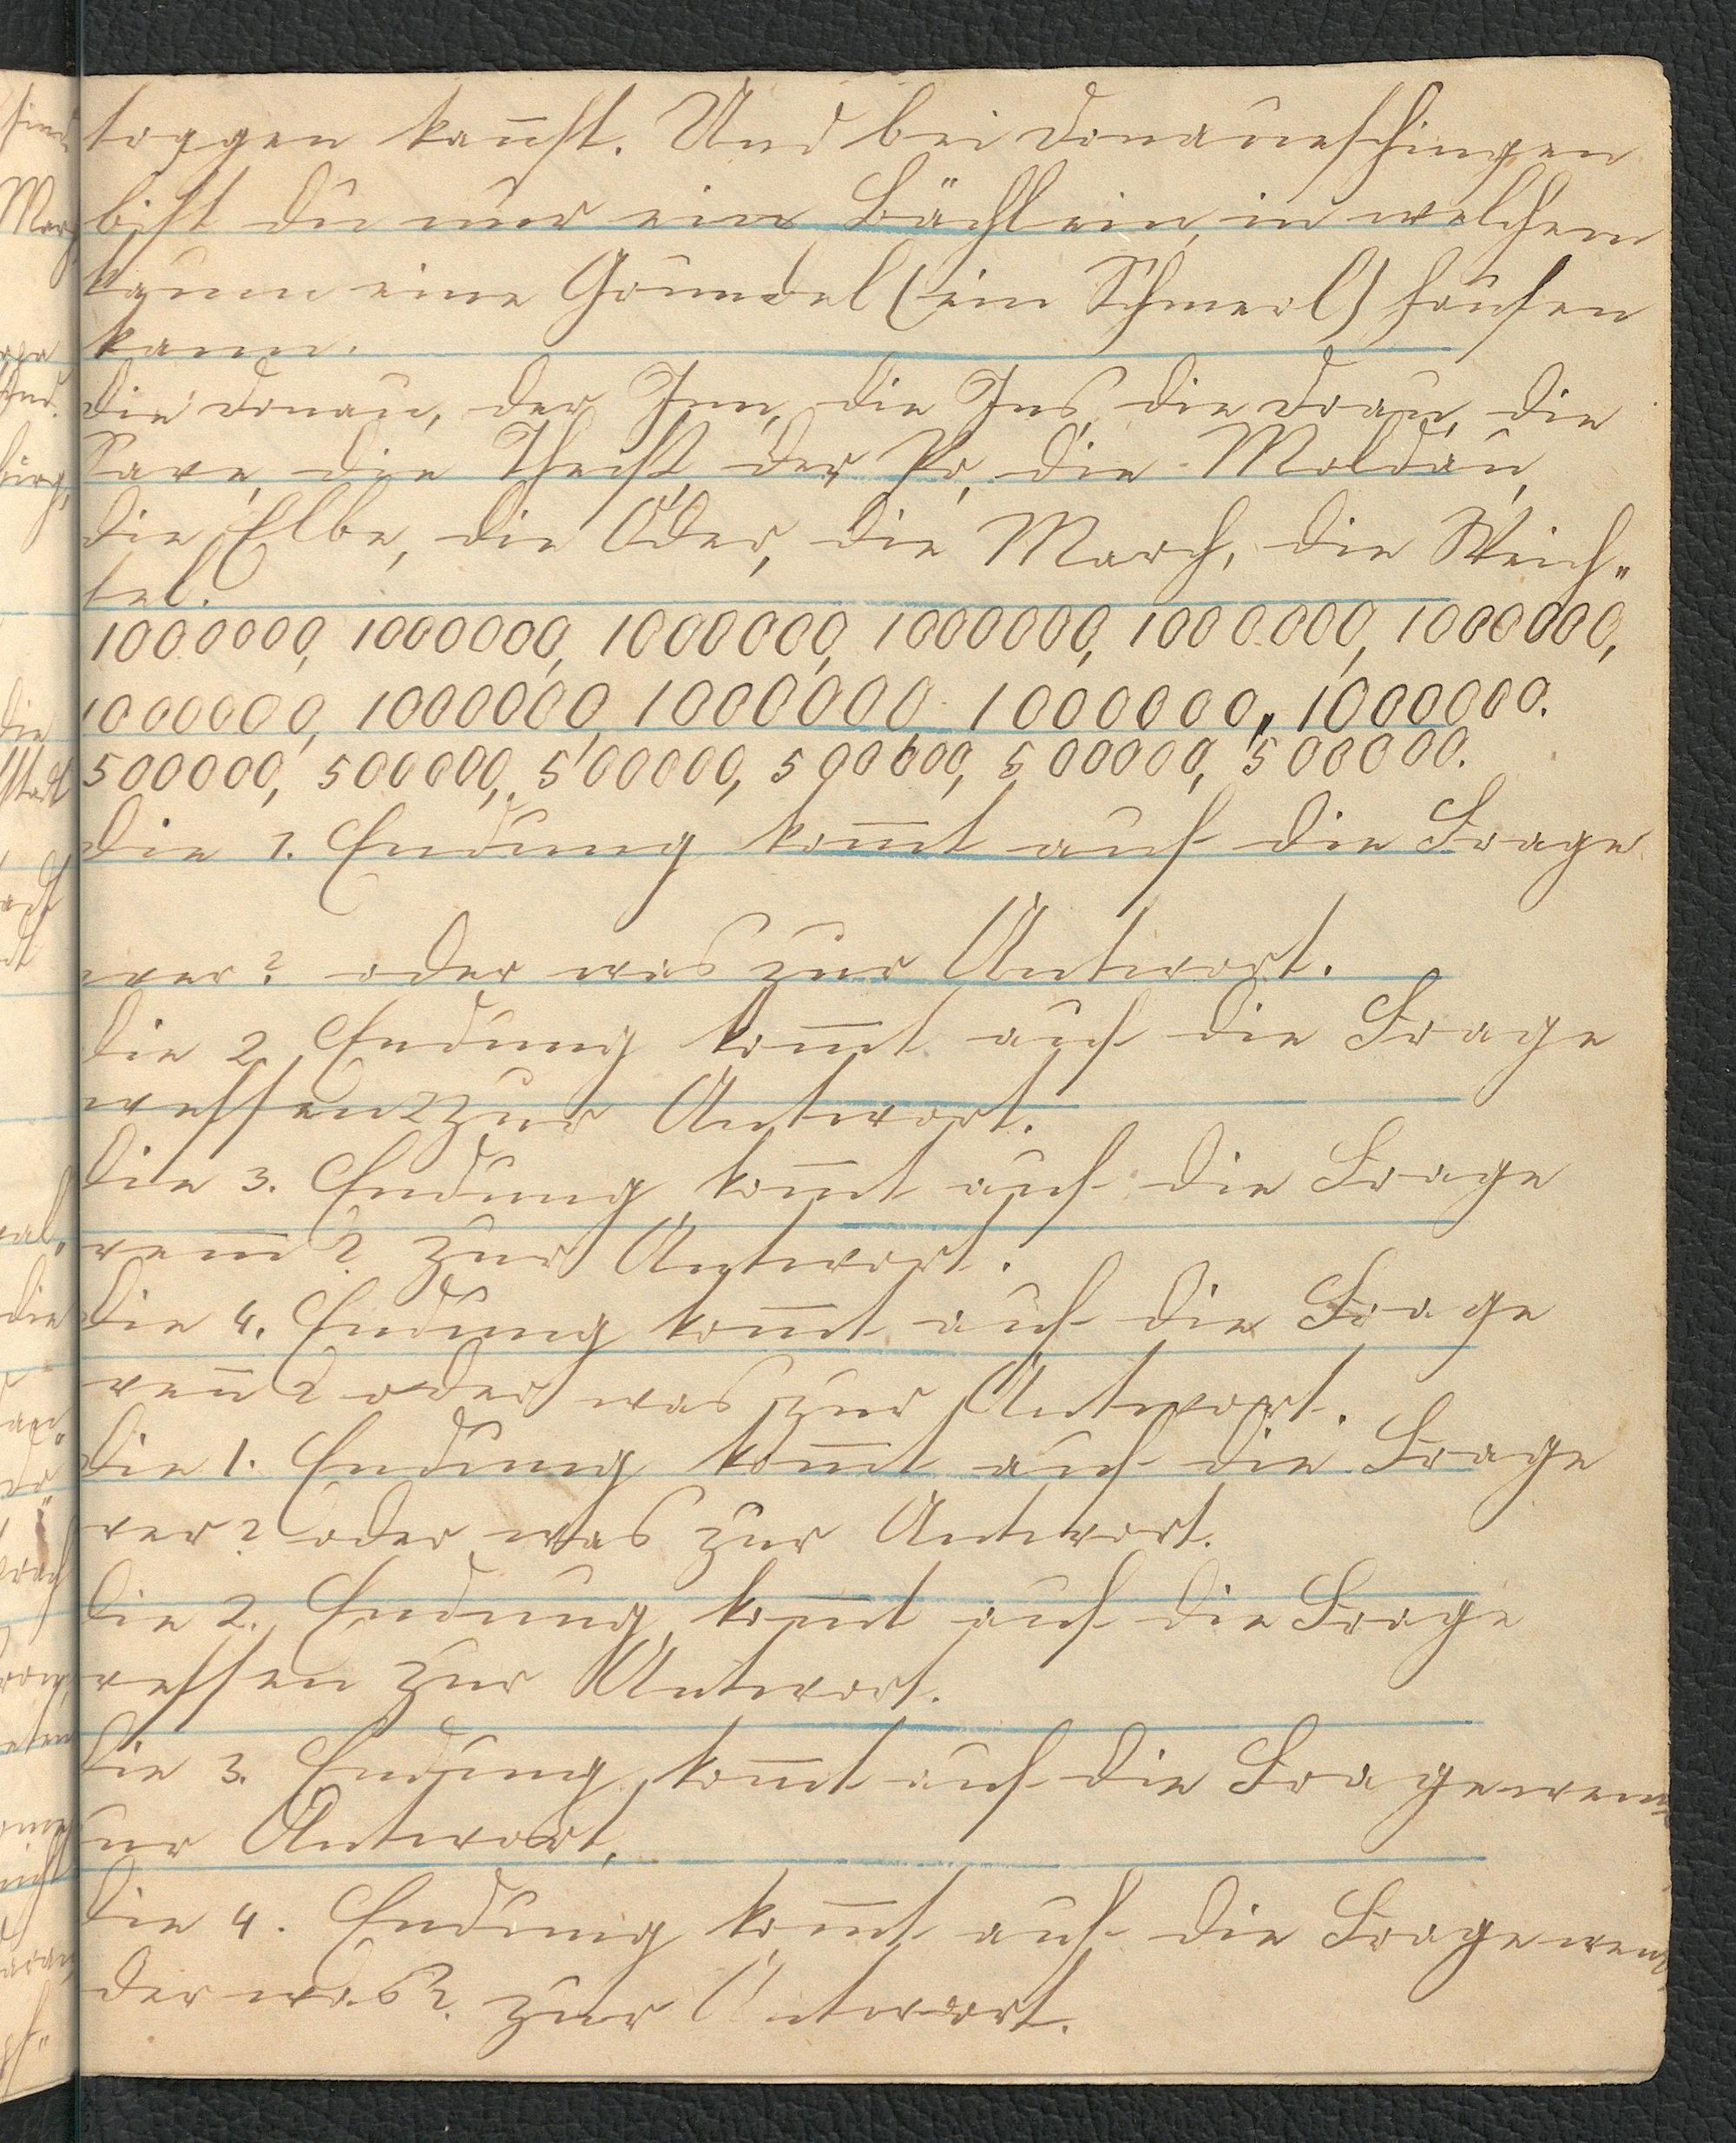 toggen kan̅st. Und bei Donaueschingen
bist du nur ein Bächlein, in welchem
kaum eine Grundel (ein Schmerl) hausen
kann.
Die Donau, der Inn, die Ins, die Drau, die
Save, die Theiß, der Po, die Moldau,
die Elbe, die Oder, die March, die Weich„
sel.
1000000, 1000000, 1000000, 1000000, 1000000, 1000000,
1000000, 1000000, 1000000 1000000„ 1000000.
500000, 500000, 500000, 500000, 500000, 500000.
Die 1. Endung kom̅t auf die Frage
wer? oder was zur Antwort.
Die 2. Endung kom̅t auf die Frage
wessen? zur Antwort.
Die 3. Endung kom̅t auf die Frage
wem̅? zur Antwort.
Die 4. Endung kom̅t auf die Frage
wen̅? oder was zur Antwort.
Die 1. Endung kom̅t auf die Frage
wer? oder was zur Antwort.
Die 2. Endung kom̅t auf die Frage
wessen zur Antwort.
Die 3. Endung kom̅t auf die Frage wem
zur Antwort.
Die 4. Endung kom̅t auf die Frage wen
oder was? zur Antwort.